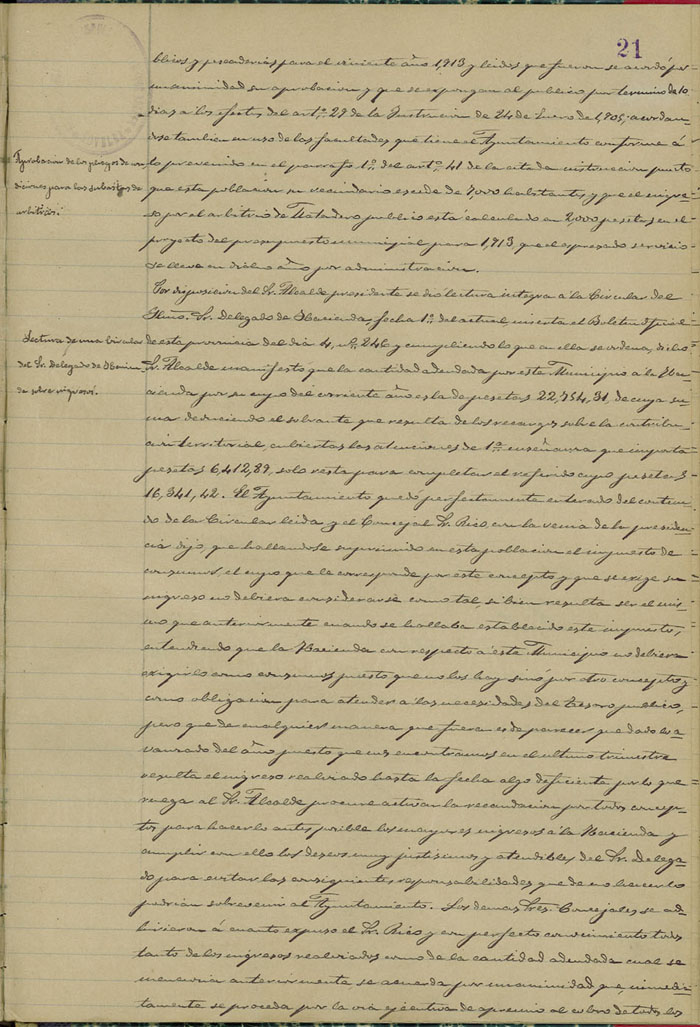 21
blicos y pescaderias para el corriente año 1,913 y leidos que fueron se acordó por
unanimidad su aprobacion y que se expongan al publico por termino de 10
dias a los efectos del artº. 29 de la Instruccion de 24 de Enero de 1,905; acordan-
dose tambien en uso de las facultades que tiene el Ayuntamiento conforme á
Aprobacion de los pliegos de con-
diciones para las subastas de
arbitrios.
lo prevenido en el parrafo 1º. del artº. 41 de la citada instruccion puesto
que esta poblacion su vecindario escede de 7,000 habitantes, y que el ingre-
so por el arbitrio de Matadero publico está calculado en 2,000 pesetas en el
proyecto del presupuesto municipal para 1,913, que el espresado servicio
se lleve en dicho año por administracion.
Por disposicion del Sr. Alcalde presidente se dio lectura integra á la Circular del
Iltmo. Sr. Delegado de Hacienda, fecha 1º. del actual, inserta el Boletin oficial
Lectura de una circular
del Sr. Delegado de Hacien-
da sobre ingresos.
de esta provincia del dia 4, nº. 246 y cumpliendo lo que en ella se ordena, dicho
Sr. Alcalde manifestó que la cantidad adeudada por este Municipio a la Ha-
cienda por su cupo del corriente año es la de pesetas 22,754,31, de cuya su-
ma deduciendo el sobrante que resulta de los recargos sobre la contribu-
cion territorial, cubiertas las atenciones de 1ª. enseñanza que importa
pesetas 6,412,89, solo resta para completar el referido cupo pesetas
16,341,42. El Ayuntamiento quedó perfectamente enterado del conteni-
do de la Circular leida, y el Concejal Sr. Rico, con la venia de la presiden-
cia dijo, que hallandose suprimido en esta poblacion el impuesto de
consumos, el cupo que le corresponde por este concepto y que se exige su
ingreso no debiera considerarse como tal, si bien resulta ser el mis-
mo que anteriormente cuando se hallaba establecido este impuesto,
entendiendo que la Hacienda con respecto á este Municipio no debiera
exigirlo como consumos puesto que no los hay sinó por otro concepto y
como obligacion para atender a las necesidades del tesoro publico,
pero que de cualquier manera que fuera es de parecer que dado lo a-
vanzado del año puesto que nos encontramos en el ultimo trimestre
resulta el ingreso realizado hasta la fecha algo deficiente por lo que
ruega al Sr. Alcalde procure activar la recaudacion por todos concep-
tos para hacer lo antes posible los mayores ingresos á la Hacienda y
cumplir con ello los deseos muy justisimos y atendibles del Sr. Delega-
do para evitar las consiguientes responsabilidades que de no hacerlo
podrian sobrevenir al Ayuntamiento. Los demas Sres. Concejales se ad-
hirieron á cuanto expuso el Sr. Rico y con perfecto conocimiento todos
tanto de los ingresos realizados como de la cantidad adeudada cual se
menciona anteriormente se acuerda por unanimidad que inmedia-
tamente se proceda por la via ejecutiva de apremio al cobro de todos los